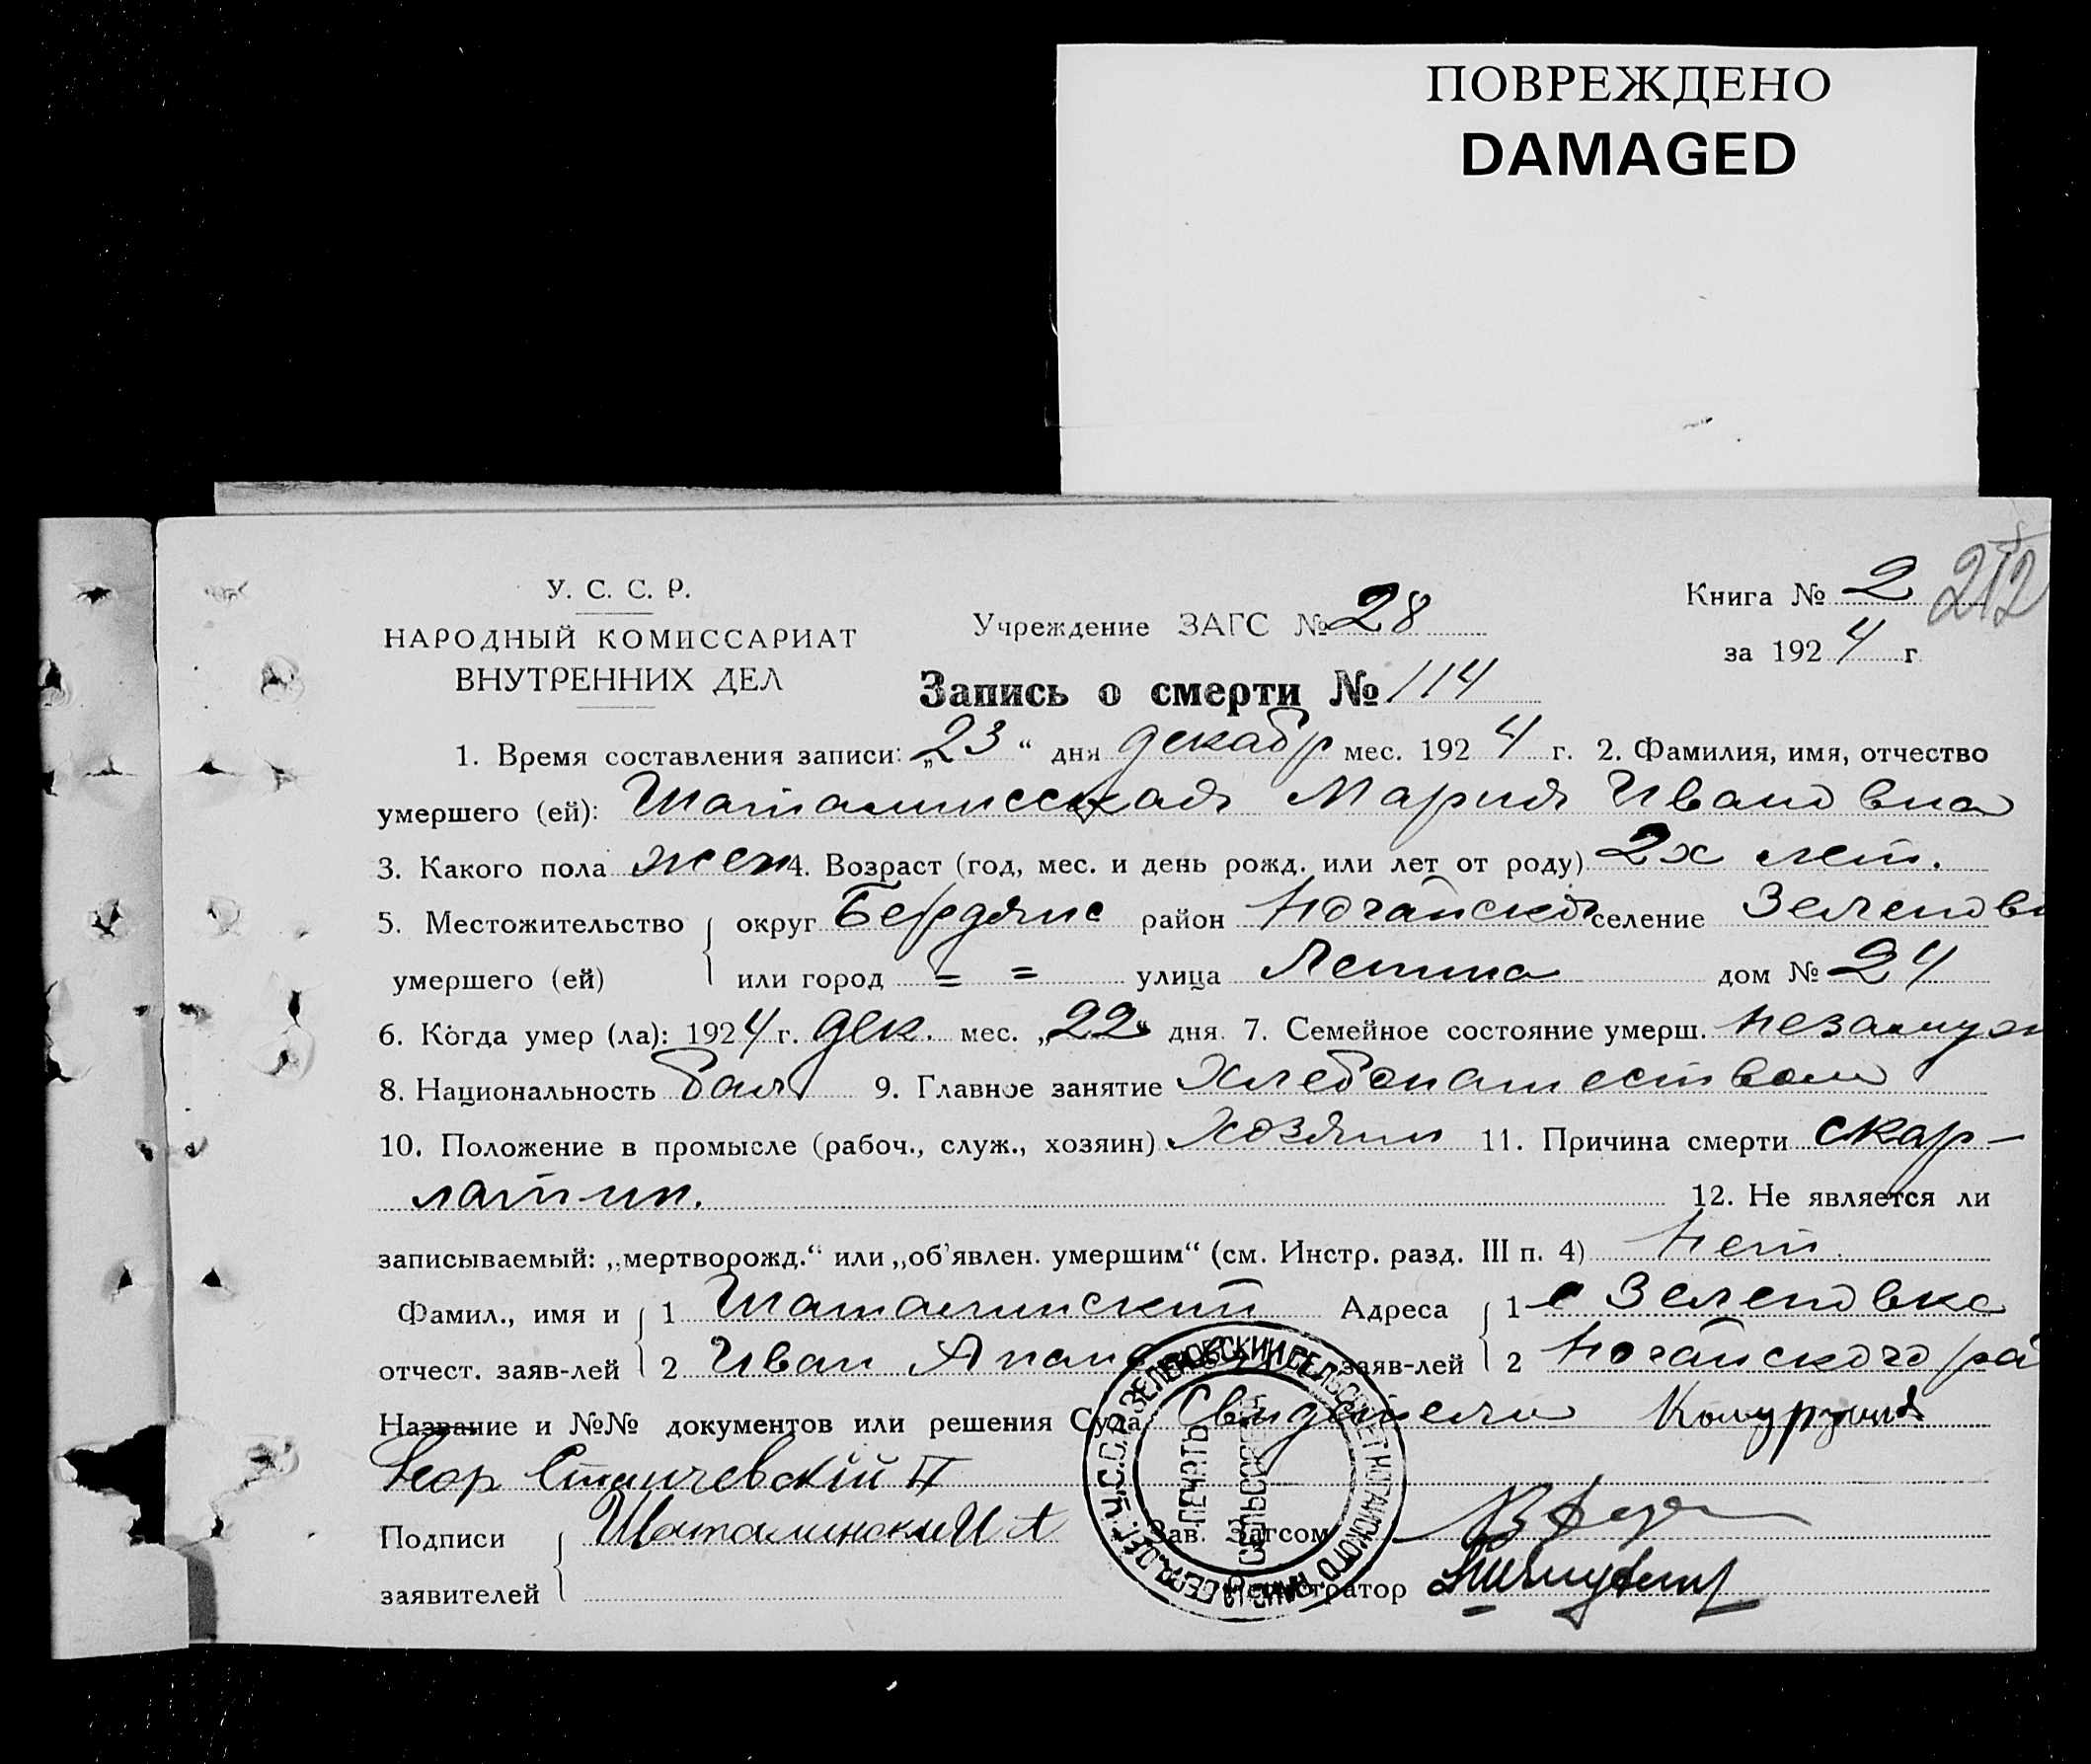 ПОВРЕЖДЕНО
DAMAGED
У. С. С. Р.
НАРОДНЫЙ КОМИССАРИАТ
ВНУТРЕННИХ ДЕЛ
Учреждение ЗАГС № 28
Книга № 2 212
за 1924 г.
Запись о смерти № 114
1. Время составления записи: „23“ дня декабр мес. 1924 г. 2. Фамилия, имя, отчество
умершего (ей): Мария Ивановна
3. Какого пола жен 4. Возраст (год, мес. и день рожд. или лет от роду) 2х лет.
5. Местожительство округ Бердянс район Ногайско селение Зеленовк
умершего (ей) или город = = улица Ленина дом № 24
6. Когда умер (ла): 1924 г. дек. мес. „22“ дня. 7. Семейное состояние умерш. незамуж
8. Национальность болг 9. Главное занятие
10. Положение в промысле (рабоч., служ., хозяин) хозяин 11. Причина смерти скар-
латин. 12. Не является ли
записываемый: „мертворожд.“ или „об'явлен. умершим“ (см. Инстр. разд. III п. 4) Нет
Фамил., имя и 1 Шаталинский Адреса 1 с Зеленовка
отчест. заяв-лей 2 Иван заяв-лей 2 Ногайского ра
Название и №№ документов или решения Суда: Свидетели
Подписи Шаталински И А Зав. Загсом
заявителей Регистратор
У.С.С.Р. ЗЕЛЕНОВСКИЙ СЕЛЬСОВЕТ НОГАЙСКОГО
ПЕЧАТЬ
СЕЛЬСОВЕТА